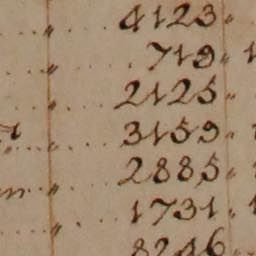 " . . 4123 "
" . . . 719 "
" . . 2125 "
" . . . 3159 "
" . . 2885 "
" . . 1731 "
8246